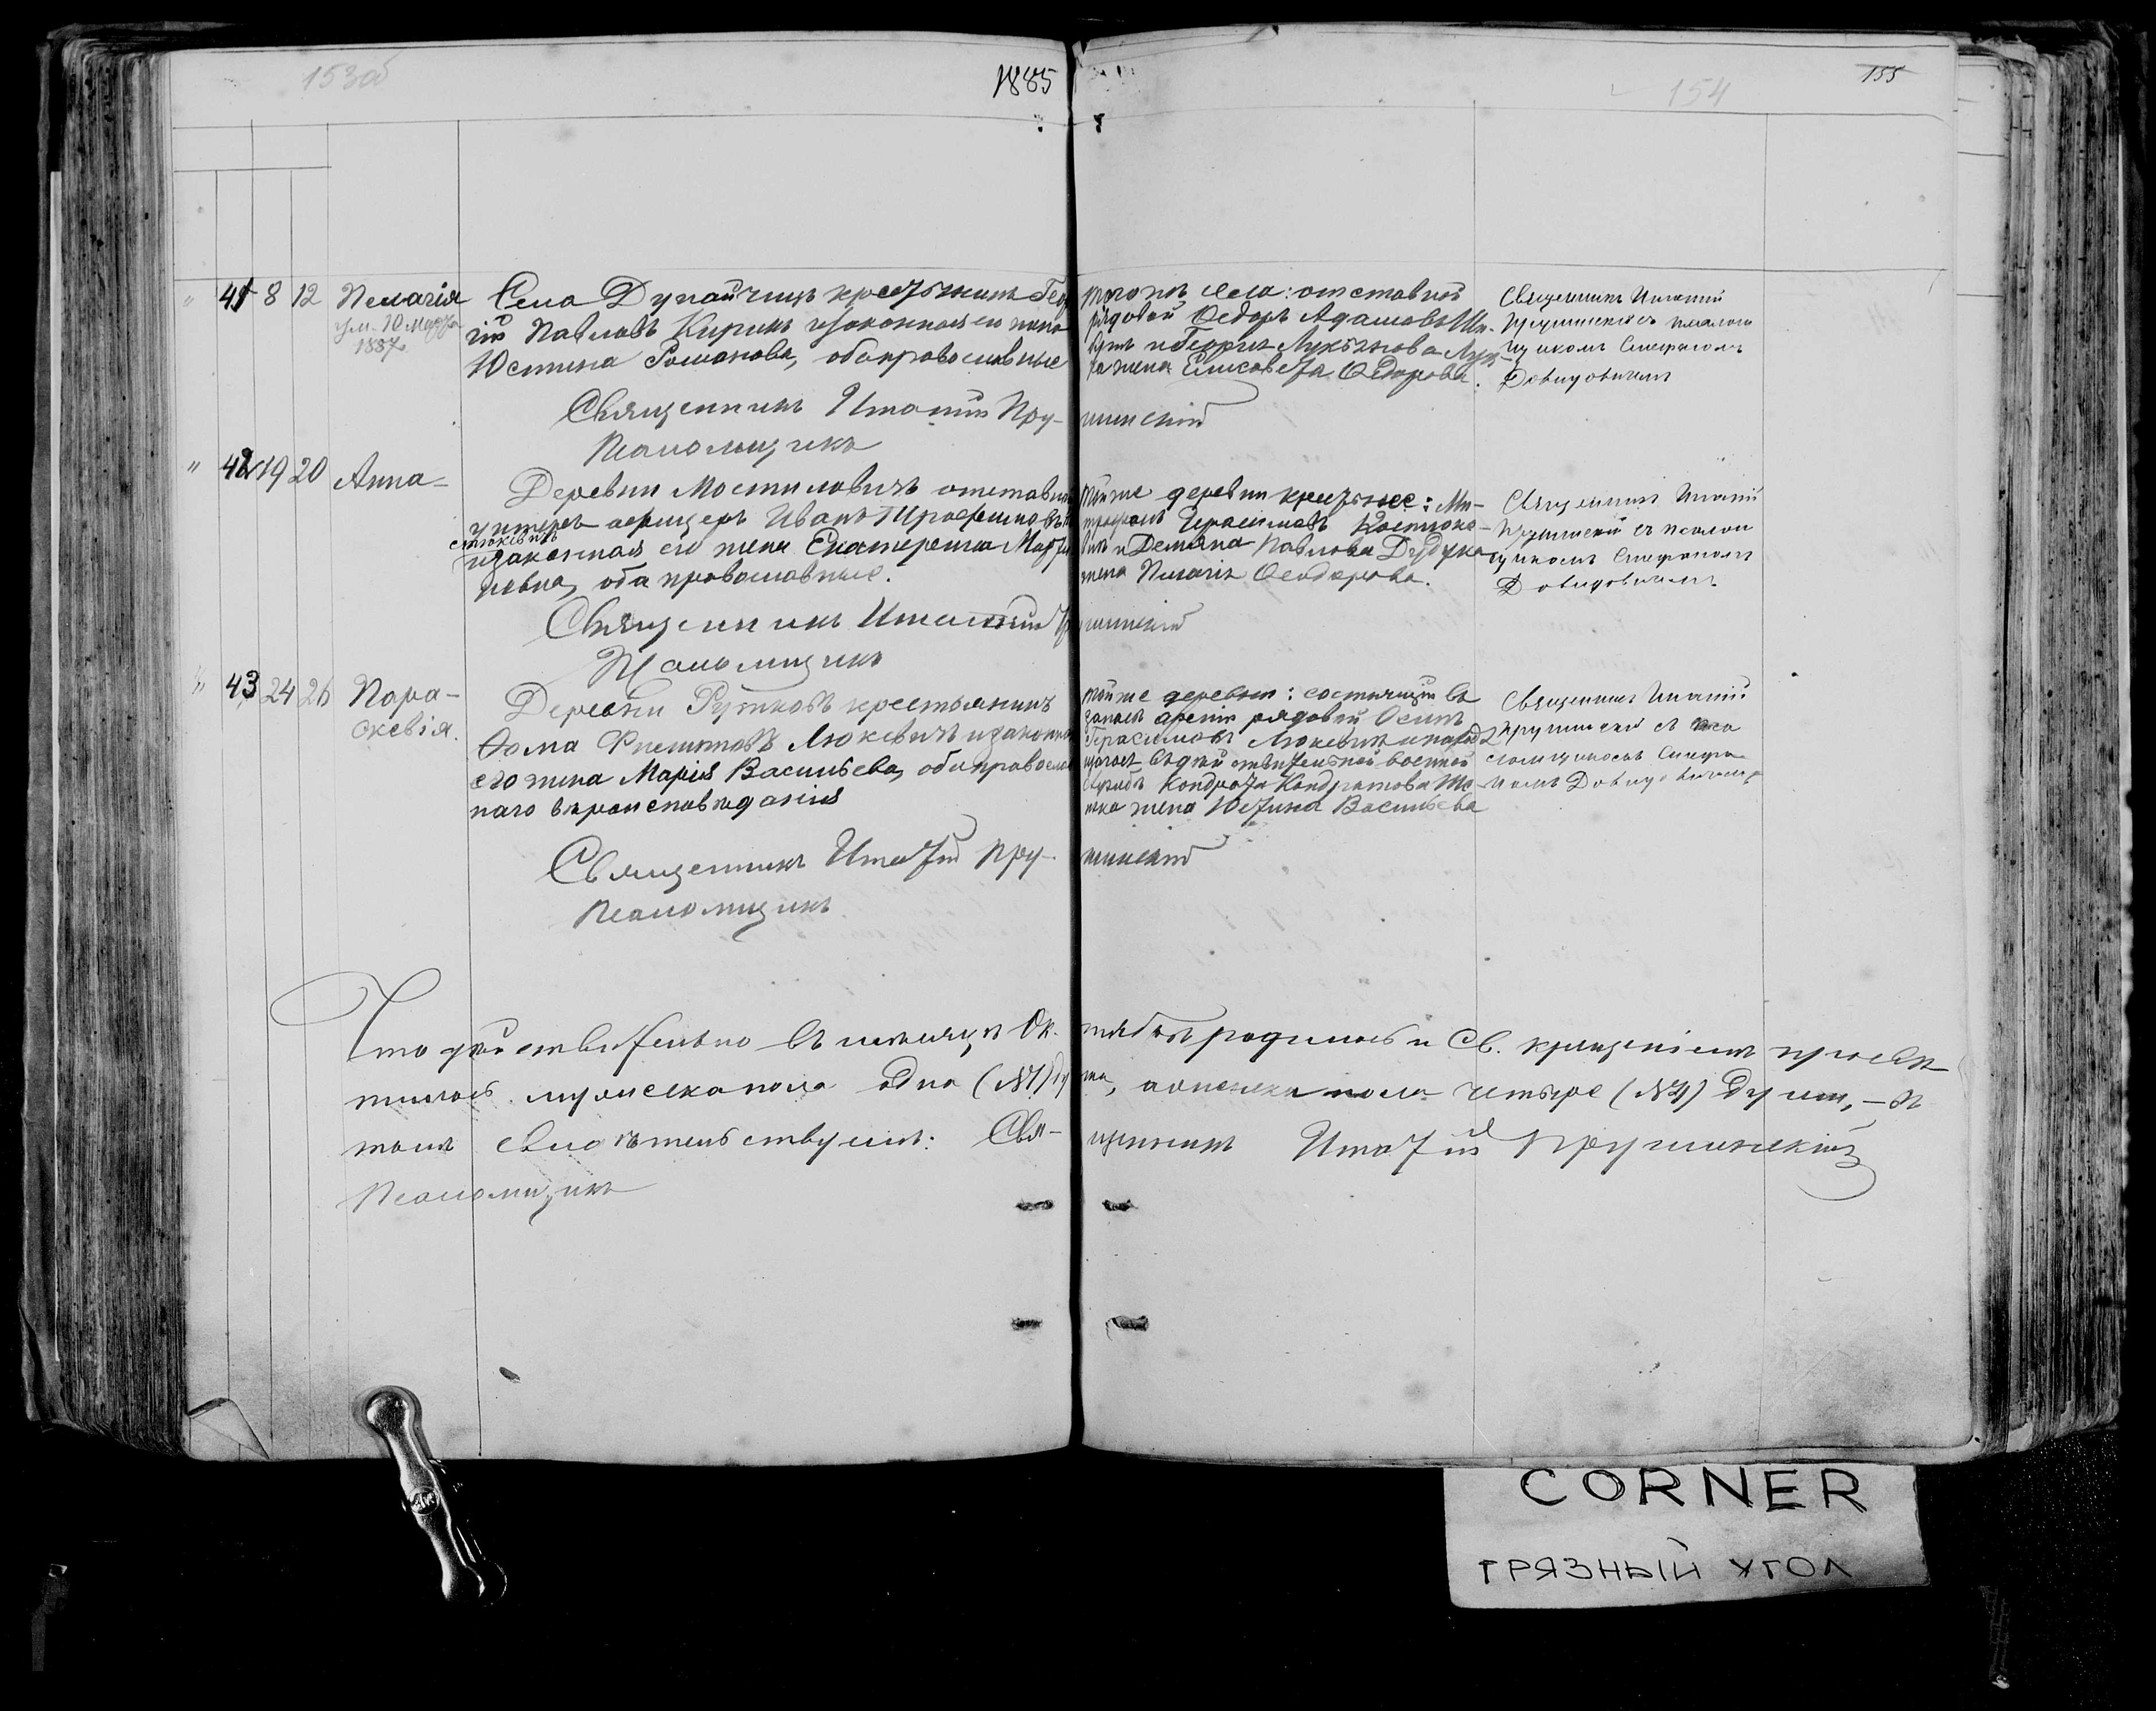 153об
1885
154
155
" 41 8 12 Пелагія
ум. 10 Марта
1887.
Села Дунайчицъ крестьянинъ Геор
гій Павловъ Киринъ и законная его жена
Юстина Романова, оба православные
Священникъ Игнатій Пру-
Псаломщикъ
того же села: отставной
рядовой Ѳедоръ Адамовъ
и Георгія Лукьянова
жена Елисавета Ѳедорова.
жинскій
Священникъ Игнатій
Пружинскій съ псалом
щикомъ Стефаномъ
Довидовичемъ
" 42 19 20 Анна
Деревни Мостиловичъ отставной
унтеръ офицеръ Иванъ Трофимовъ
и законная его жена Екатерина Марти
новна, оба православные.
Священникъ Игнатій Пру
Псаломщикъ
тойже деревни крестьяне: Ми-
трофанъ Герасимовъ Костюко-
вичъ и Демьяна Павлова Дудука
жена Пелагія Ѳеодорова.
жинскій
Священникъ Игнатій
Пружинскій съ псалом
щикомъ Стефаномъ
Довидовичемъ
" 43 24 26 Пара-
скевія.
Деревни Рутковъ крестьянинъ
Ѳома Филиповъ Люкевичъ и законная
его жена Марія Васильева, оба православ
наго вѣроисповѣданія
Священникъ Игнатій Пру-
Псаломщикъ
тойже деревни: состоящій въ
запасѣ арміи рядовой Осипъ
Герасимовъ Люкевичъ и
въ дѣйствительной военной
службѣ Кондрата Кондратова
жена Юстина Васильева
жинскій
Священникъ Игнатій
Пружинскій съ пса
ломщикомъ Стефа
номъ Довидовичемъ
Что дѣйствительно въ мѣсяцѣ Ок-
тябрѣ родилось и Св. крещеніемъ просвѣ
тилось мужеска пола одна (№1) ду
ша, а женска пола четыре (№4) души, - въ
томъ свидѣтельствуемъ: Свя-
щенникъ Игнатій Пружинскій
Псаломщикъ
CORNER
ГРЯЗНЫЙ УГОЛ